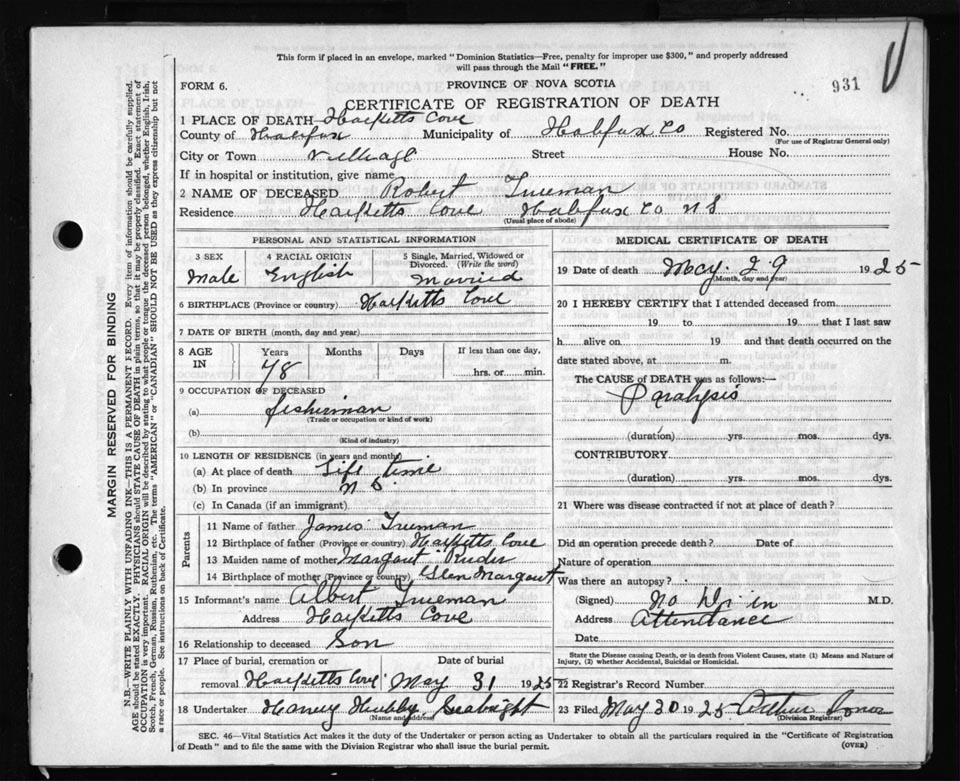 This form if placed in an envelope, marked "Dominion Statistics—Free, penalty for improper use $300," and properly addressed
will pass through the Mail "FREE."
FORM 6.
PROVINCE OF NOVA SCOTIA
931
CERTIFICATE OF REGISTRATION OF DEATH
1 PLACE OF DEATH Hacketts Cove
County of Halifax Municipality of Halifax Co Registered No.
(For use of Registrar General only)
City or Town Village Street House No.
If in hospital or institution, give name
2 NAME OF DECEASED Robert Trueman
Residence Hacketts Cove Halifax Co N S
(Usual place of abode)
PERSONAL AND STATISTICAL INFORMATION
3 SEX 4 RACIAL ORIGIN 5 Single, Married, Widowed or
Divorced. (Write the word)
Male English Married
6 BIRTHPLACE (Province or country) Hacketts Cove
7 DATE OF BIRTH (month, day and year)
8 AGE IN Years Months Days If less than one day,
78 hrs. or min.
9 OCCUPATION OF DECEASED
(a) fisherman
(Trade or occupation or kind of work)
(b)
(Kind of industry)
10 LENGTH OF RESIDENCE (in years and months)
(a) At place of death Life time
(b) In province N S
(c) In Canada (if an immigrant)
Parents
11 Name of father James Trueman
12 Birthplace of father (Province or country) Hacketts Cove
13 Maiden name of mother Margaret
14 Birthplace of mother (Province or country) Glen Margaret
15 Informant's name Albert Trueman
Address Hacketts Cove
16 Relationship to deceased Son
17 Place of burial, cremation or Date of burial
removal Hacketts Cove May 31 1925
18 Undertaker Harvey Hubley Seabright
(Name and address)
MEDICAL CERTIFICATE OF DEATH
19 Date of death May 29 1925
(Month, day and year)
20 I HEREBY CERTIFY that I attended deceased from
19 to 19 that I last saw
h alive on 19 and that death occurred on the
date stated above, at m.
The CAUSE OF DEATH was as follows:—
Paralysis
(duration) yrs. mos. dys.
CONTRIBUTORY
(duration) yrs. mos. dys.
21 Where was disease contracted if not at place of death?
Did an operation precede death? Date of
Nature of operation
Was there an autopsy?
(Signed) No Dr in M.D.
Address Attendance
Date
State the Disease causing Death, or in death from Violent Causes, state (1) Means and Nature of
Injury, (2) whether Accidental, Suicidal or Homicidal.
22 Registrar's Record Number
23 Filed May 30 1925 Arthur
(Division Registrar)
SEC. 46—Vital Statistics Act makes it the duty of the Undertaker or person acting as Undertaker to obtain all the particulars required in the "Certificate of Registration
of Death" and to file the same with the Division Registrar who shall issue the burial permit.
(OVER)
MARGIN RESERVED FOR BINDING
N.B.—WRITE PLAINLY WITH UNFADING INK—THIS IS A PERMANENT RECORD. Every item of information should be carefully supplied.
AGE should be stated EXACTLY. PHYSICIANS should STATE CAUSE OF DEATH in plain terms, so that it may be properly classified. Exact statement of
OCCUPATION is very important. RACIAL ORIGIN will be described by stating to what people or tongue the deceased person belonged, whether English, Irish,
Scotch, French, German, Russian, Ruthenian, etc. The terms "AMERICAN" or "CANADIAN" SHOULD NOT BE USED as they express citizenship but not
a race or people. See instructions on back of Certificate.